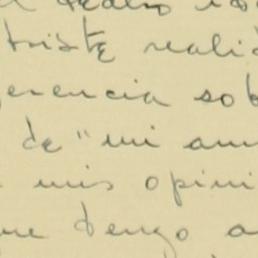 triste realid
erencia sob
de "mi am
mis opini
que tengo a